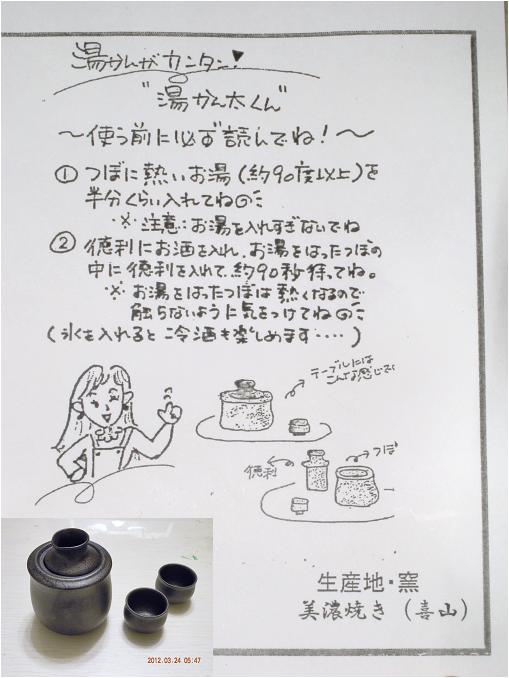 湯かんがカンタン!
"湯かん太くん"
〜使う前に必ず読んでね!〜
① つぼに熱いお湯(約90度以上)を
半分くらい入れてね
※ 注意:お湯を入れすぎないでね
② 徳利にお酒を入れ、お湯をはったつぼの
中に徳利を入れて、約90秒待ってね。
※ お湯をはったつぼは熱くなるので
触らないように気をつけてね
(氷を入れると冷酒も楽しめます・・・・)
テーブルには
こんな感じで
徳利
つぼ
生産地・窯
美濃焼き (喜山)
2012.03.24 05:47